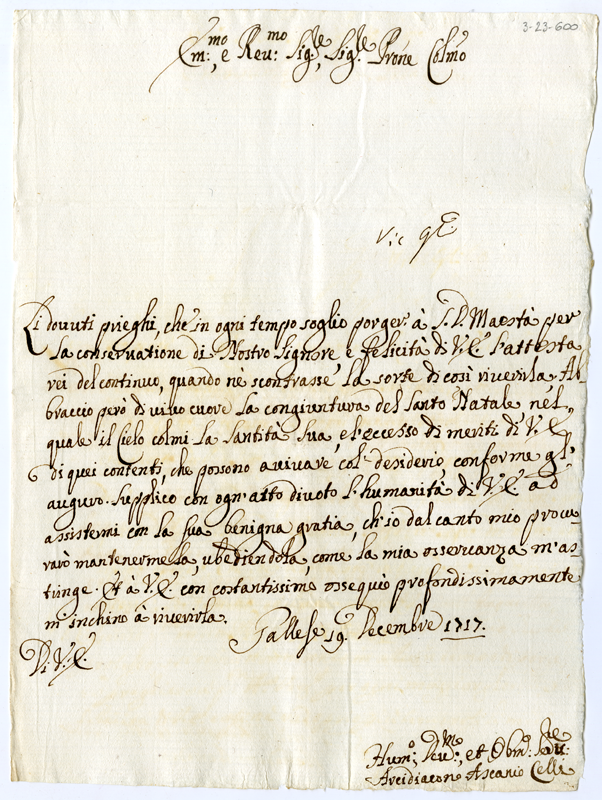 3-23-600
Em:mo, e Reu:mo Sig:re, Sig:re Prone Colmo
Li douuti prieghi, che in ogni tempo soglio porger' à S. D. Maestà per
la conseruatione di Nostro Signore e felicità di V.E. l'attesta
rei del continuo, quando nè scontrasse la sorte di così riuerirla. Ab
braccio però di uiuo cuore la congiuntura del Santo Natale nel,,
quale il Cielo colmi la Santità Sua, e l'eccesso di meriti di V.E.
di quei contenti, che possono auiuare col' desiderio, conforme gl'
auguro. Supplico con ogn'atto diuoto l'humanità di V.E. ad
assistermi con la sua benigna gratia, ch'io dal canto mio procu
rarò mantenermela, ubediendola come la mia osseruanza m'as
tringe. Et à V.E. con costantissimo ossequio profondissimamente
m'inchino à riuerirla.
Gallese 19. Decembre 1717.
Di V.E.
Hum:o, Deu:mo, et Obm:o Se:re
Arcidiacono Ascanio Celli